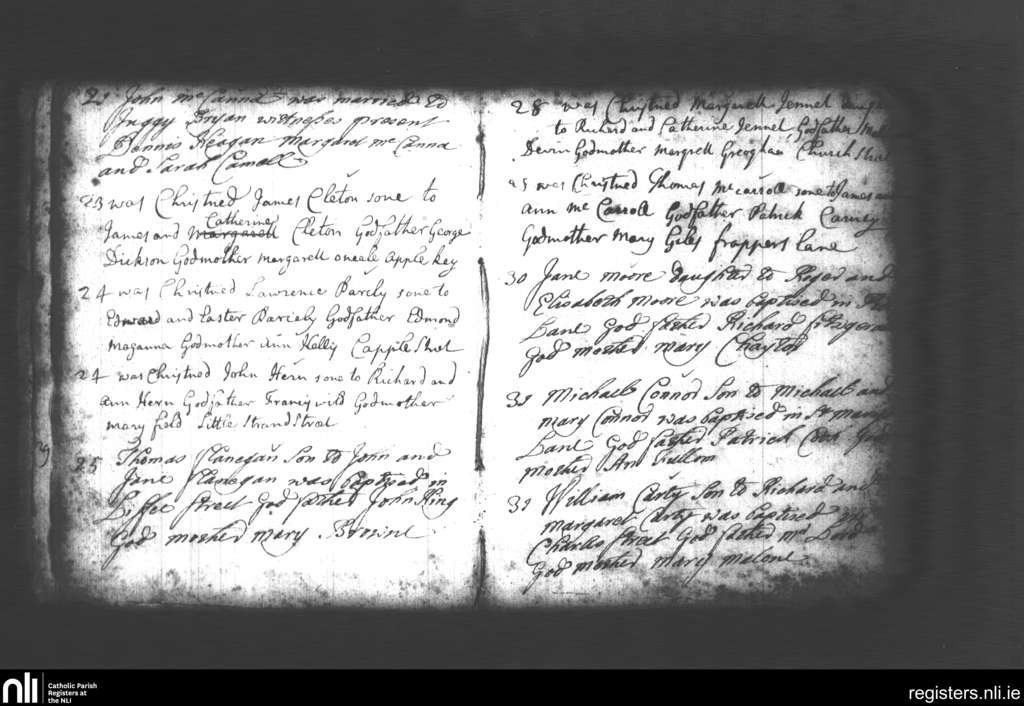 23 John mc Canna was married to
Juggy Bryan witnesses present
Dennis Keagan Margaret mc Canna
and Sarah
23 was Christned James Cleton sone to
James and Margarett Catherine Cleton Godfather George
Dickson Godmother Margarett oneale apple key
24 was Christned Lawrence Parcly sone to
Edward and Easter Parciely Godfather Edmond
Maganna Godmother Ann Kelly Capple Street
24 was Christned John Hern sone to Richard and
ann Hern Godfather Godmother
mary field Little Strand Street
25 Thomas Flanegan Son to John and
Jane Flanegan was baptised in
Liffee Street God father John King
God mother mary
28 was Christned Margarett Jennet
to Richard and Catherine Jennet Godfather
Devin Godmother Margrett Church
was Christned Thomas Mccarroll sone to James
ann Mc Carroll Godfather Patrick Carney
Godmother Mary Giles frappers lane
30 Jane moore daughter to Roger and
Elisabeth Moore was baptised in
Lane God father Richard
God mother mary Chaytor
Michael Connor Son to Michael and
mary Connor was baptised in
Lane God father Patrick
mother An Fullom
William Carty Son to Richard and
margaret Carty was baptised
Charles Street God father mr
God mother mary malone
nli Catholic Parish
Registers at
the NLI
registers.nli.ie